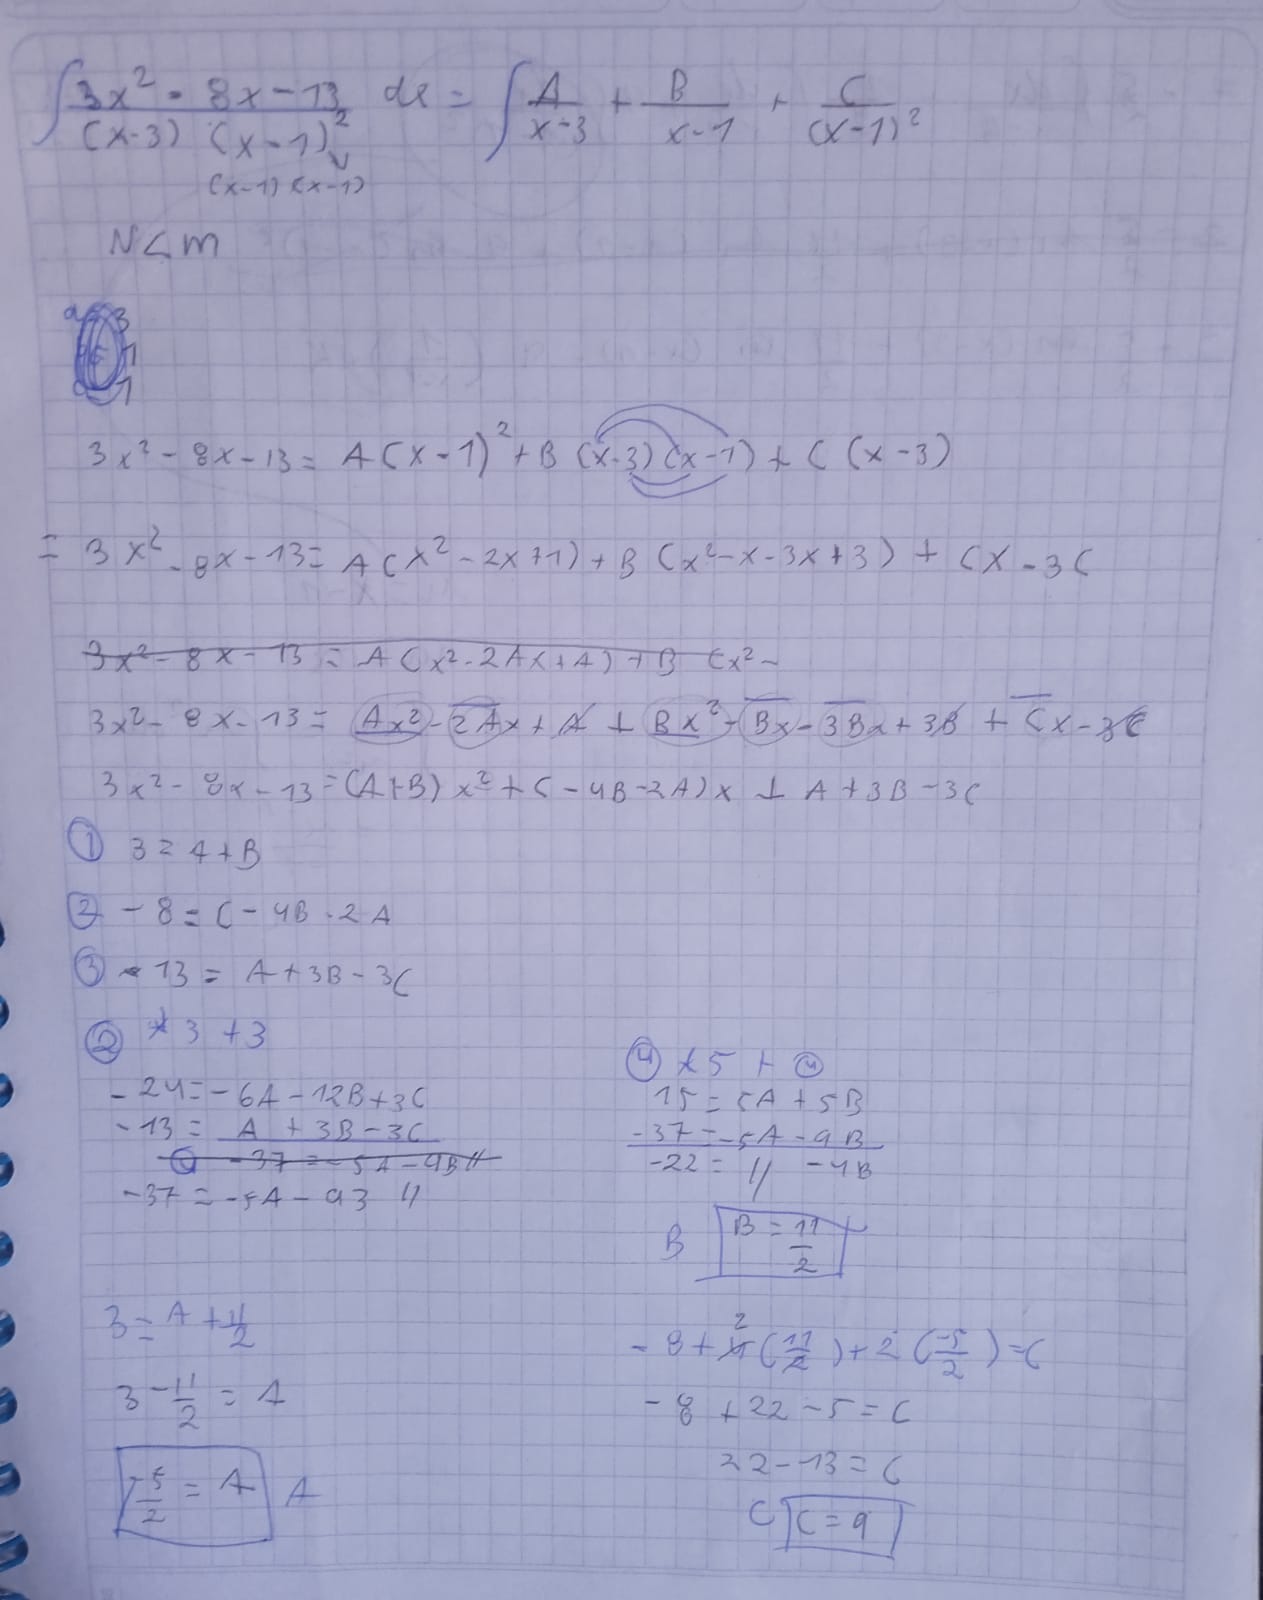 ∫ 3x² - 8x - 13 / (x-3) (x-1)² dx = ∫ A/x-3 + B/x-1 + C/(x-1)²
(x-1) (x-1)
N<m
3x² - 8x - 13 = A(x-1)² + B (x-3)(x-1) + C (x-3)
= 3x² - 8x - 13 = A(x² - 2x + 1) + B (x² - x - 3x + 3) + Cx - 3C
3x² - 8x - 13 = A(x² - 2Ax + A) + B (x² -
3x² - 8x - 13 = Ax² - 2Ax + A + Bx² - Bx - 3Bx + 3B + Cx - 3C
3x² - 8x - 13 = (A+B) x² + (-4B-2A)x + A + 3B - 3C
① 3 = A + B
② - 8 = C - 4B - 2A
③ - 13 = A + 3B - 3C
② * 3 + 3
- 24 = - 6A - 12B + 3C
- 13 = A + 3B - 3C
-37 = - 5A - 9B //
-37 = -5A - 9B //
3 = A + 11/2
3 - 11/2 = A
-5/2 = A A
④ * 5 +
15 = 5A + 5B
-37 = -5A - 9B
-22 = // -4B
B B = 11/2
- 8 + 4 2 (11/2) + 2 (-5/2) = C
- 8 + 22 - 5 = C
22 - 13 = C
C C = 9